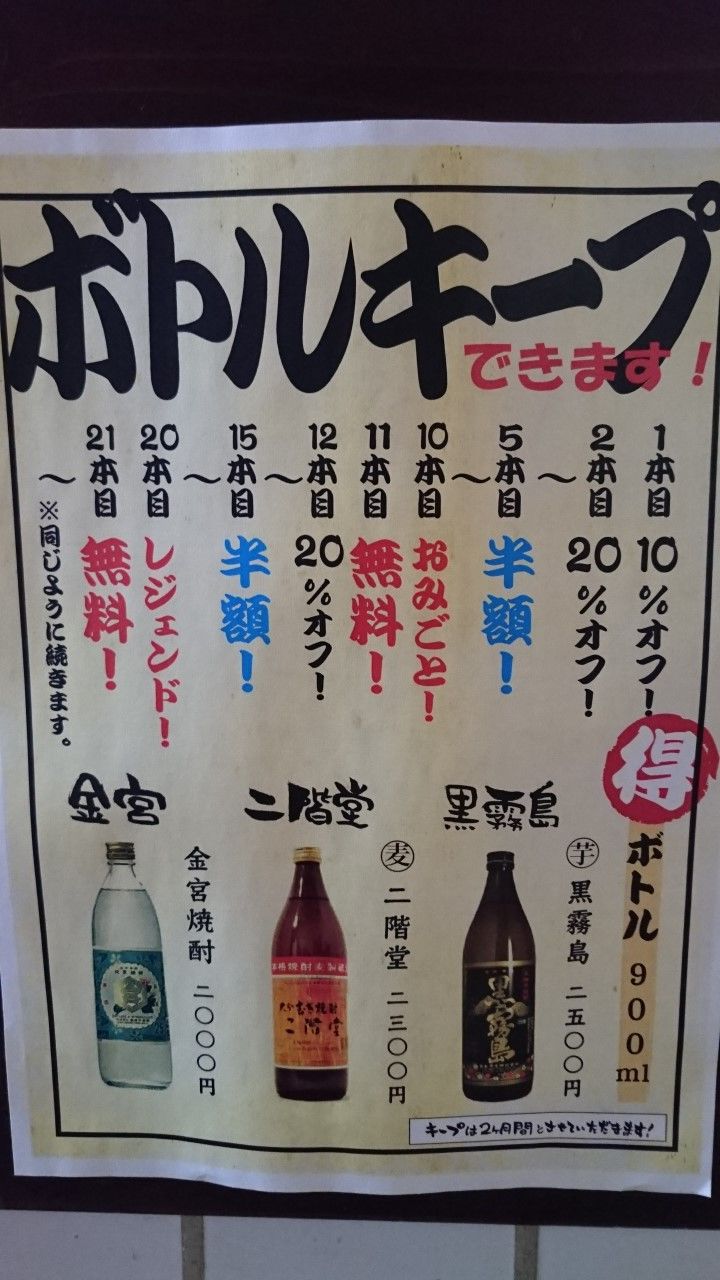 ボトルキープ
できます！
1本目 10％オフ！
2本目 20％オフ！
〜
5本目 半額！
〜
10本目 おみごと！
11本目 無料！
12本目 20％オフ！
〜
15本目 半額！
〜
20本目 レジェンド！
21本目 無料！
〜
※同じように続きます。
得
ボトル 900ml
黒霧島
芋 黒霧島 二五〇〇円
黒霧島
二階堂
麦 二階堂 二三〇〇円
本格焼酎
大分むぎ焼酎
二階堂
金宮
金宮焼酎 二〇〇〇円
キープは2ヶ月間とさせていただきます！